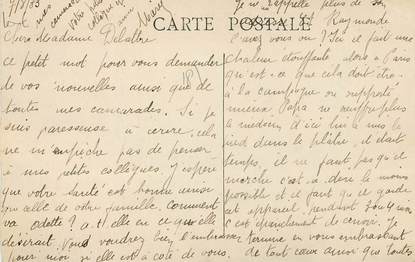 7/8/33
CARTE POSTALE
Chère Madame Delattre
ce petit mot pour vous demander
de vos nouvelles ainsi que de
toutes mes camarades. Si je
suis paresseuse à écrire, cela
ne m'empêche pas de penser
à mes petites collègues. J'espère
que votre santé est bonne ainsi
que celle de votre famille. Comment
va Odette? a-t-elle eu ce qu'elle
désirait. Vous voudrez bien l'embrasser
pour moi si elle est à côté de vous.
rappelle plus de son
Raymonde
l'avez vous vu? Ici il fait une
chaleur étouffante, alors à Paris
qu'est-ce que cela doit être
à la campagne on supporte
mieux. Papa ne souffre plus
le médecin d'ici lui a mis le
pied dans le plâtre, il était
temps, il ne faut pas qu'il
marche c'est-à-dire le moins
possible et il faut qu'il garde
cet appareil pendant 3 ou 4 mois
c'est épanchement de
Je termine en vous embrassant
de tout cœur ainsi que toutes
mes
camarades